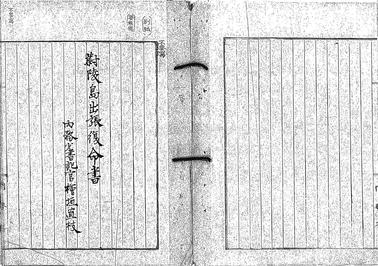 蔚陵島出張復命書
内務少書記官檜垣直枝